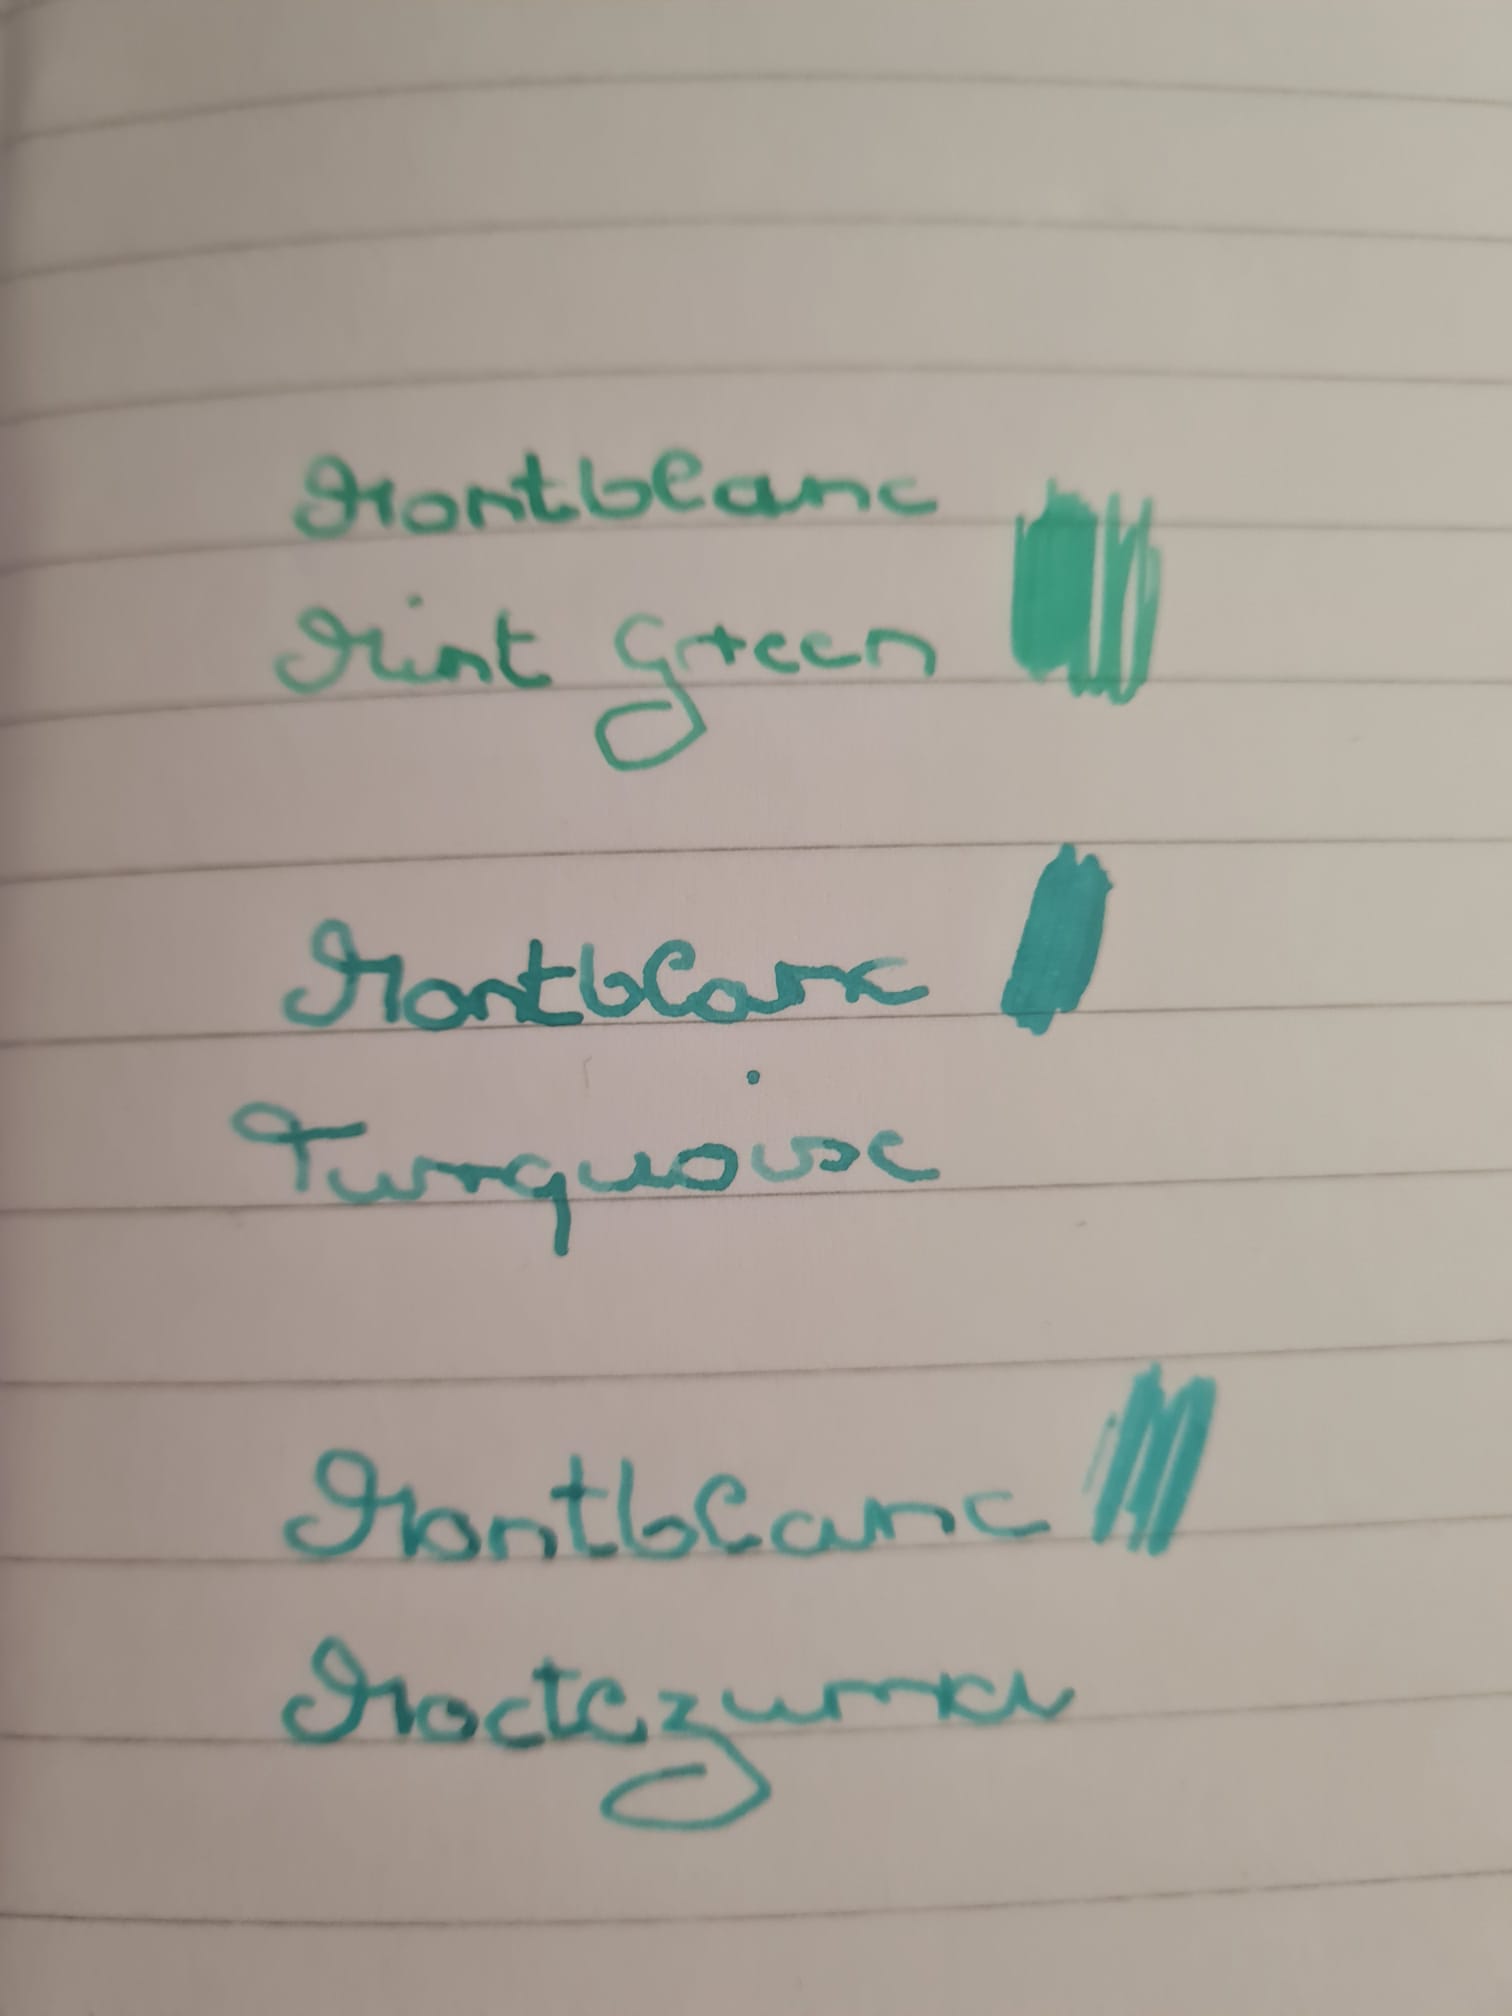 Montblanc
Mint Green
Montblanc
Turquoise
Montblanc
Moctezuma